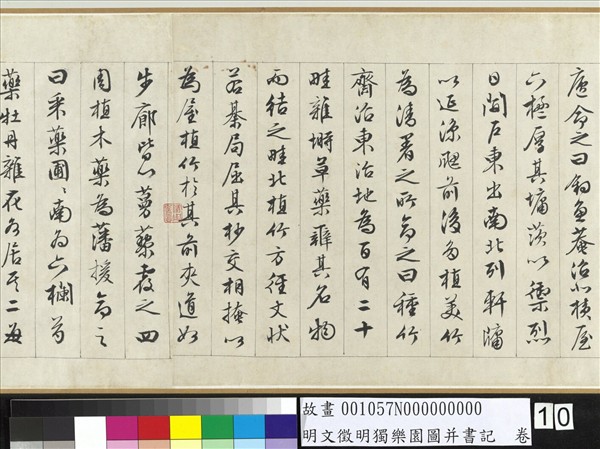 廬命之曰釣魚菴沼北橫屋
六楹厚其墉茨以禦烈
日開戶東出南北列軒牖
以延涼颸前後多植美竹
為清暑之所命之曰種竹
齋沼東治地為百有二十
畦雜蒔草藥辨其名物
而揭之畦北植竹方徑丈狀
若棊局屈其杪交相掩以
為屋植竹於其前夾道如
步廊皆以蔓藥覆之四
周植木藥為藩援命之
曰采藥圃〻南為六欄芍
藥牡丹雜花各居其二每
故畫 001057N000000000
明文徵明獨樂園圖并書記 卷
10